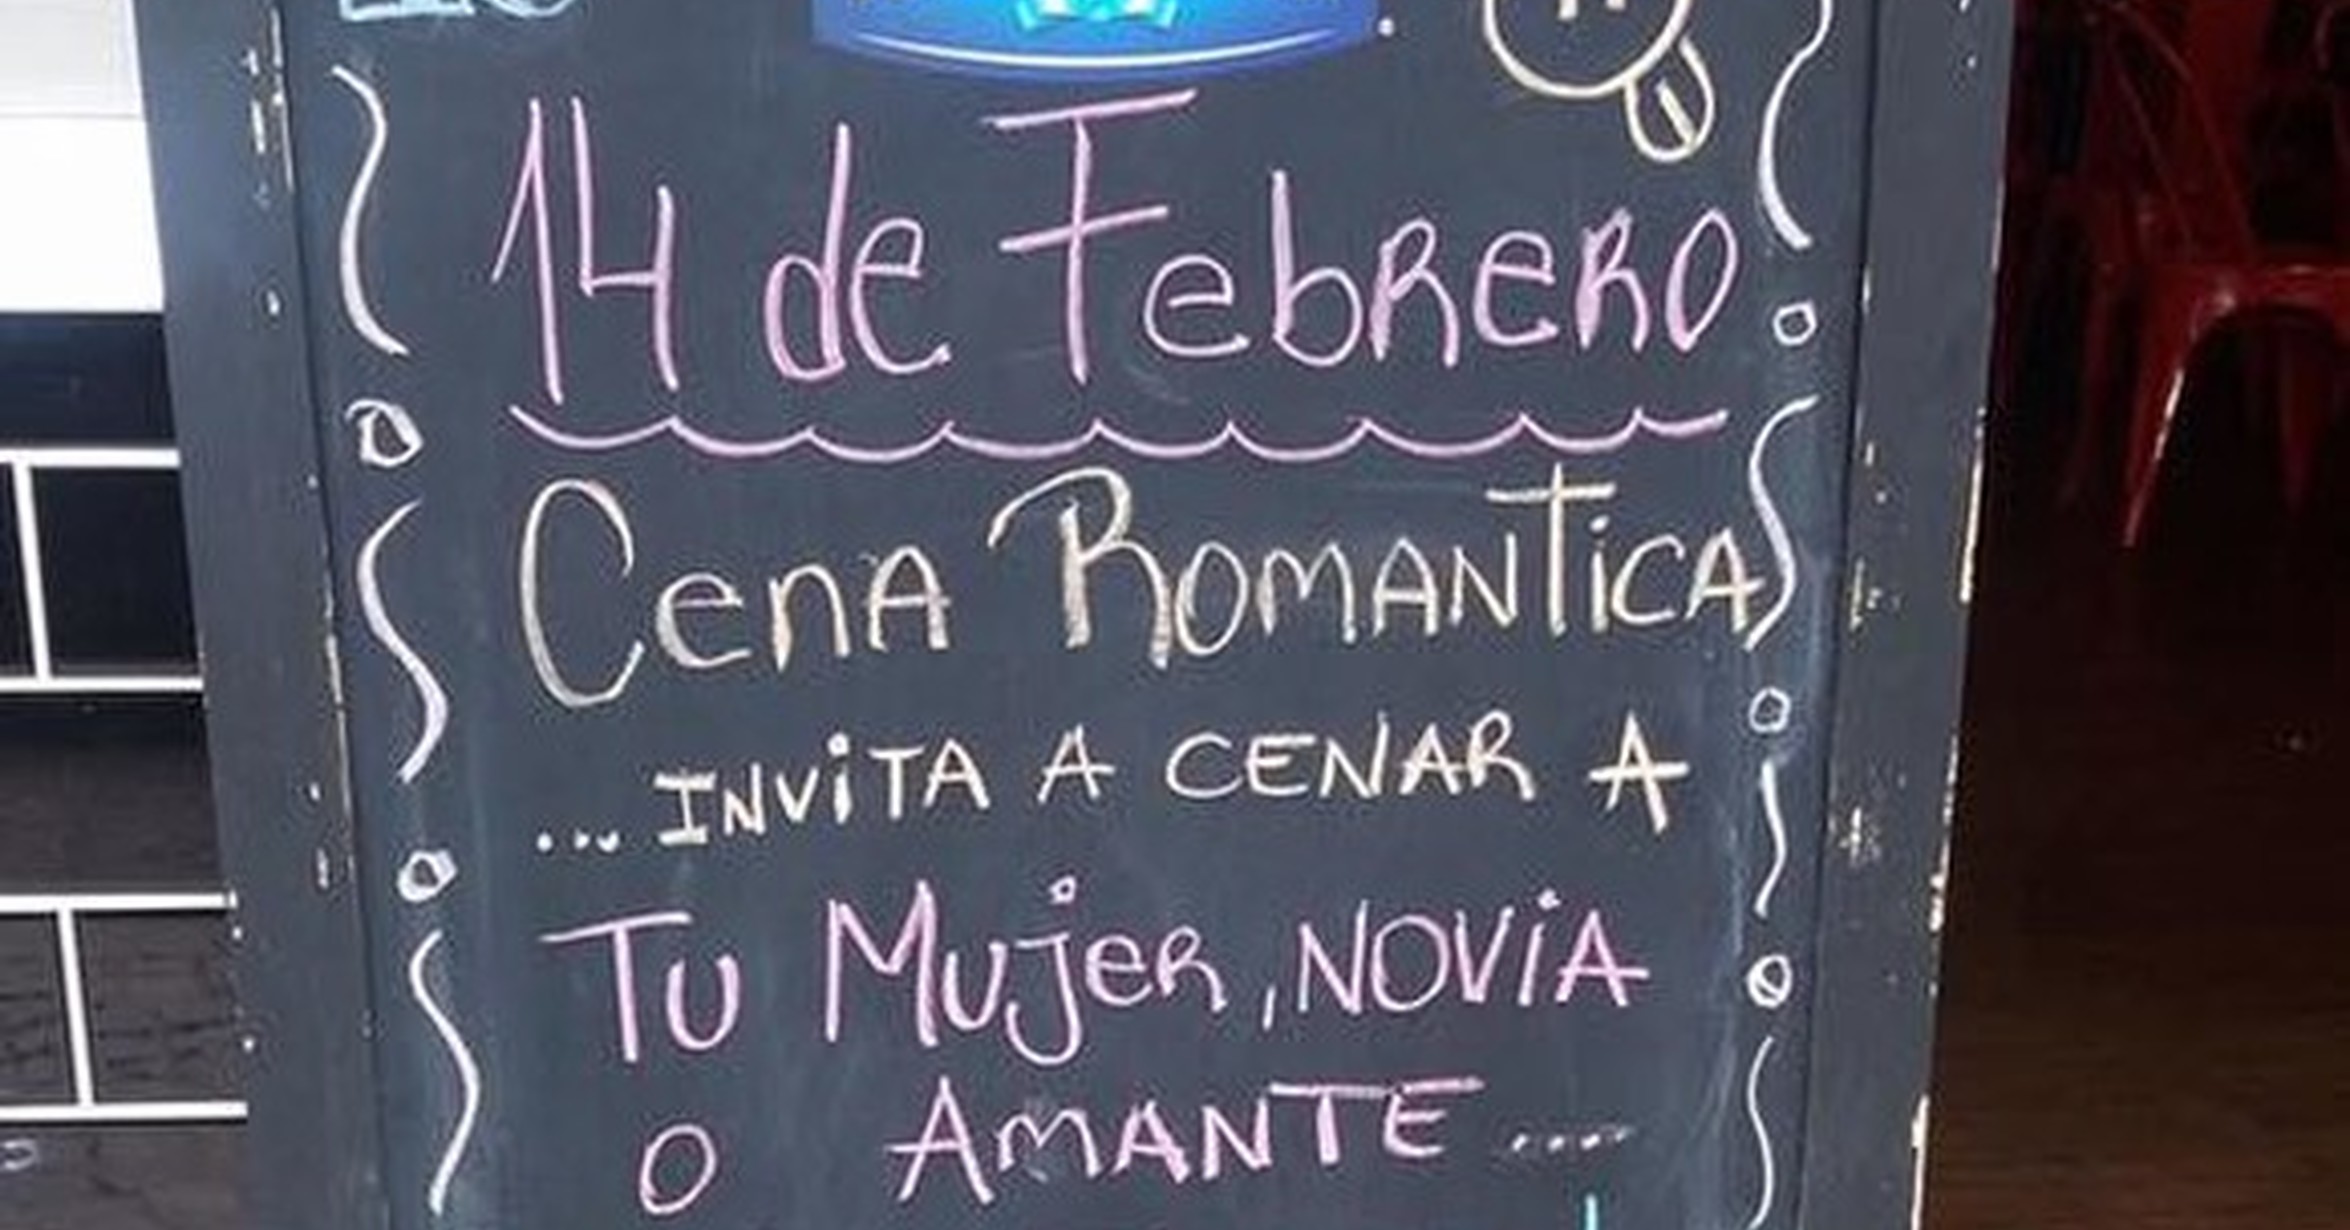 14 de Febrero
Cena Romantica
... INViTA A CENAR A
Tu Mujer, NOViA
O AMANTE ....